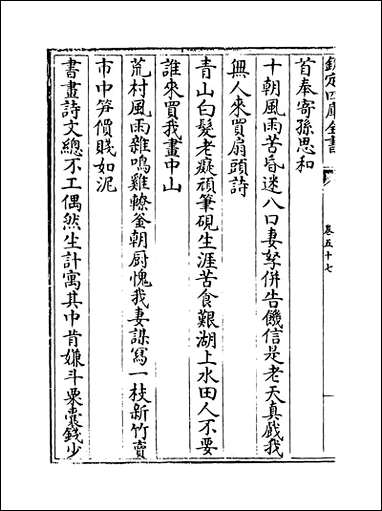 欽定四庫全書
卷五十七
首奉寄孫思和
十朝風雨苦昏迷八口妻孥併告饑信是老天真戲我
無人來買扇頭詩
青山白髮老癡頑筆硯生涯苦食艱湖上水田人不要
誰來買我畫中山
荒村風雨雜鳴雞轑釜朝厨愧我妻謀寫一枝新竹賣
市中笋價賤如泥
書畫詩文總不工偶然生計寓其中肯嫌斗粟囊錢少